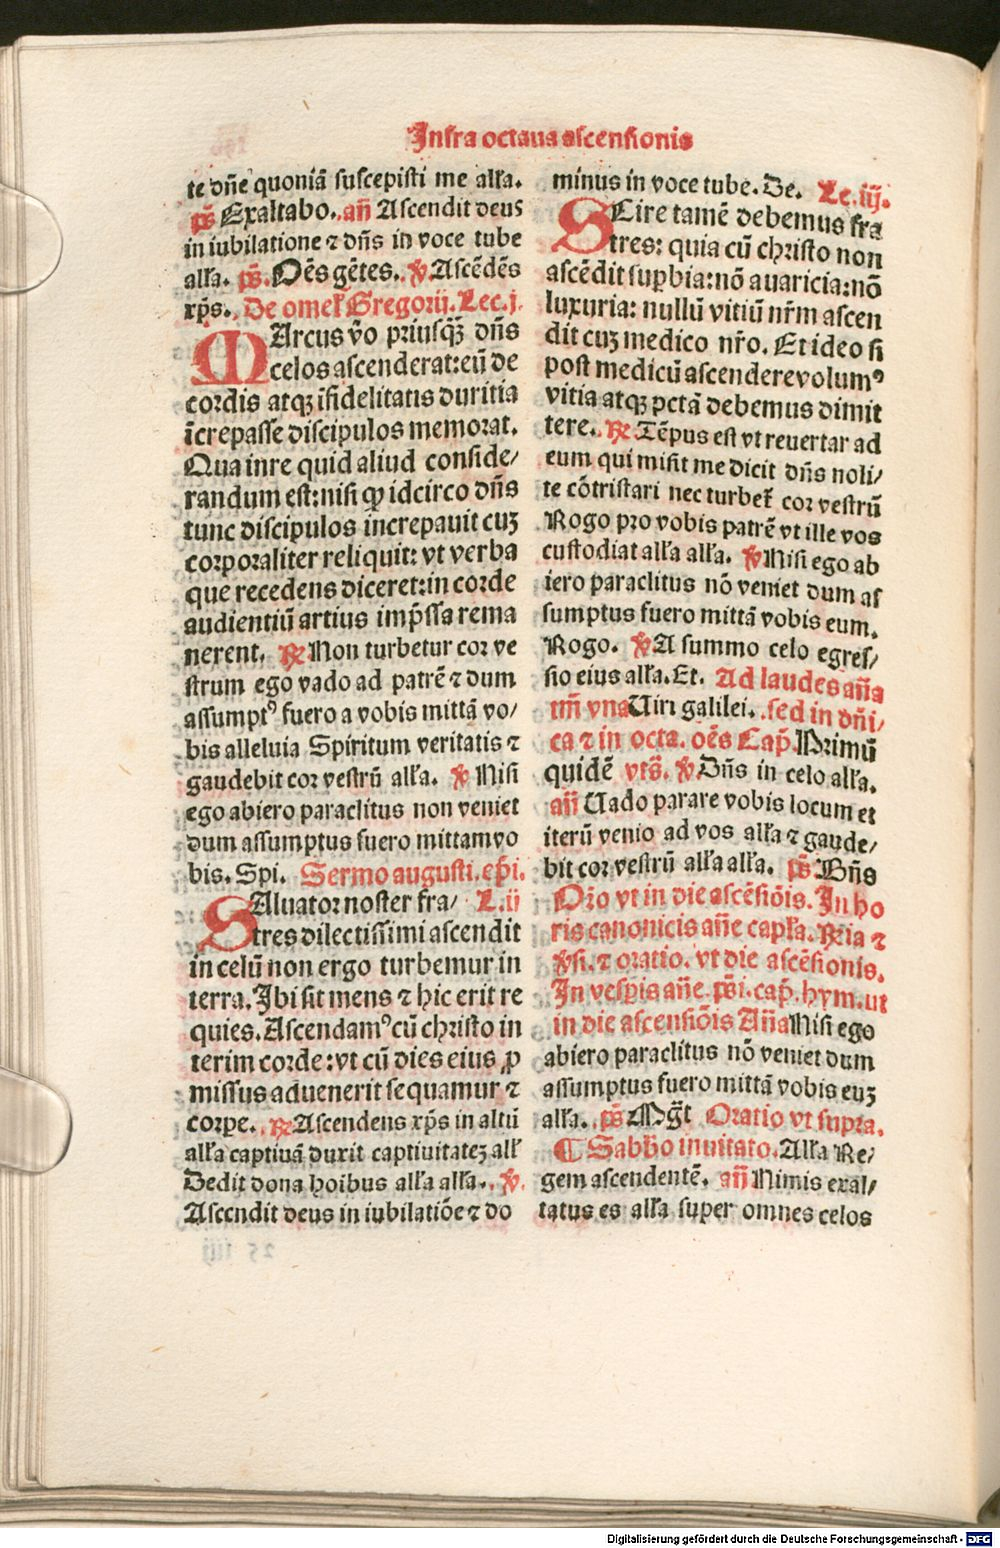 Infra octaua ascensionis
te dñe quoniã suscepisti me alľa.
p̃s Exaltabo. añ Ascendit deus
in iubilatione ⁊ dñs in voce tube
alľa. p̃s. Oẽs gẽtes. ℣ Ascẽdẽs
xp̃s. De omeľ Gregorij. Lec.j.
MArcus v̾o priusq̃ꝫ dñs
celos ascenderat:eũ de
cordis atqꝫ ĩfidelitatis duritia
ĩcrepasse discipulos memorat.
Qua inre quid aliud conside/
randum est:nisi ꝙ idcirco dñs
tunc discipulos increpauit cuꝫ
corporaliter reliquit: vt verba
que recedens diceret:in corde
audientiũ artius imp̃ssa rema
nerent. ℟ Non turbetur cor ve
strum ego vado ad patrẽ ⁊ dum
assumptꝰ fuero a vobis mittã vo/
bis alleluia Spiritum veritatis ⁊
gaudebit cor vestrũ alľa. ℣ Nisi
ego abiero paraclitus non veniet
dum assumptus fuero mittamvo
bis. Spi. Sermo augusti. ep̃i.
SAluator noster fra/ L.ii
tres dilectissimi ascendit
in celũ non ergo turbemur in
terra. Ibi sit mens ⁊ hic erit re
quies. Ascendamꝰ cũ christo in
terim corde:vt cũ dies eius ꝓ
missus aduenerit sequamur ⁊
corpe. ℟ Ascendens xp̃s in altũ
alľa captiuã duxit captiuitateꝫ alľ
Dedit dona hoibus alľa alľa. ℣.
Ascendit deus in iubilatiõe ⁊ do
minus in voce tube. De. Lc.iij.
SCire tamẽ debemus fra
tres: quia cũ christo non
ascẽdit suꝑbia:nõ auaricia:nõ
luxuria: nullũ vitiũ nr̃m ascen
dit cuꝫ medico nr̃o. Et ideo si
post medicũ ascenderevolumꝰ
vitia atqꝫ pctã debemus dimit
tere. ℟ Tẽpus est vt reuertar ad
eum qui misit me dicit dñs noli/
te cõtristari nec turbet̃ cor vestrũ
Rogo pro vobis patrẽ vt ille vos
custodiat alľa alľa. ℣ Nisi ego ab
iero paraclitus nõ veniet dum as
sumptus fuero mittã vobis eum.
Rogo. ℣ A summo celo egres/
sio eius alľa. Et. Ad laudes aña
tm̃ vna Uiri galilei. sed in dñi/
ca ⁊ in octa. oẽs Cap̃. Primũ
quidẽ vrs̃. ℣ Dñs in celo alľa.
añ Uado parare vobis locum et
iterũ venio ad vos alľa ⁊ gaude/
bit cor vestrũ alľa alľa. p̃s Bñs
Or̃o vt in die ascẽsiõis. In ho
ris canonicis añe capľa. ℟ia ⁊
℣si. ⁊ oratio. vt die ascẽsionis.
In vesꝑis añe. p̃si. cap̃. hym. ut
in die ascensiõis Aña Nisi ego
abiero paraclitus nõ veniet dum
assumptus fuero mittã vobis euꝫ
alľa. p̃s Mg̃t Oratio vt supra.
¶ Sabbo inuitato. Alľa Re/
gem ascendentẽ. añ Nimis exal/
tatus es alľa super omnes celos
Digitalisierung gefördert durch die Deutsche Forschungsgemeinschaft - DFG